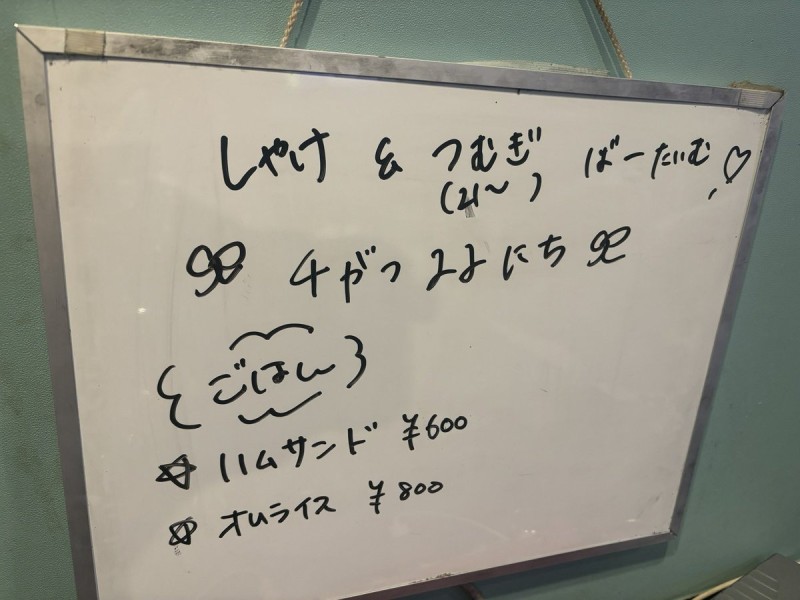 しゃけ & つむぎ ばーたいむ♡
(21〜)
4がつ22にち
{ごはん}
☆ ハムサンド ¥600
☆ オムライス ¥800